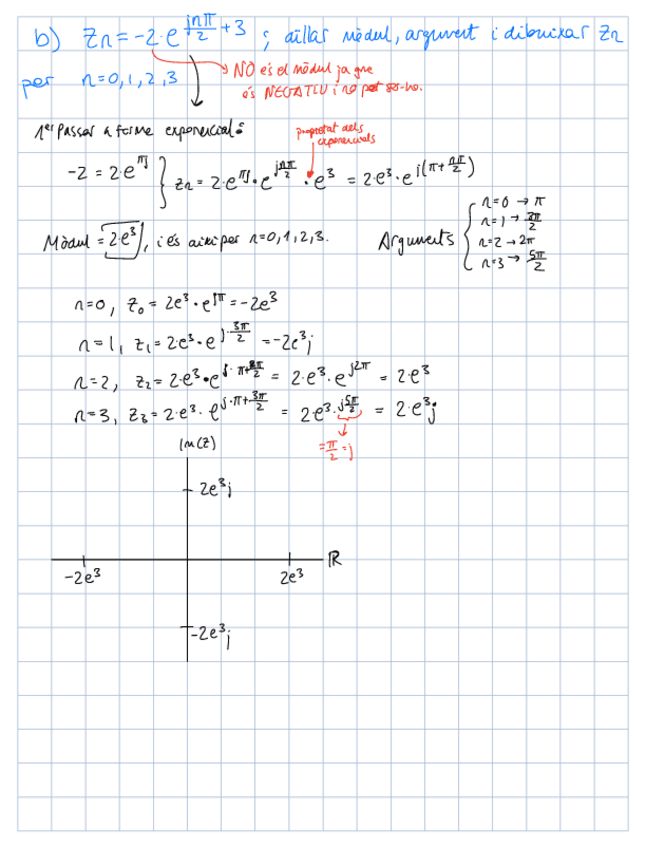 b) Zn = -2·e^(jnπ/2 + 3) ; aïllar mòdul, argument i dibuixar Zn
per n=0,1,2,3
NO és el mòdul ja que
és NEGATIU i no pot ser-ho.
1er Passar a forma exponencial:
propietat dels
exponencials
-2 = 2·e^(πj) } Zn = 2·e^(πj)·e^(jnπ/2)·e^3 = 2·e^3·e^(j(π+nπ/2))
Mòdul = 2·e^3, i és així per n=0,1,2,3.
Arguments { n=0 → π
n=1 → 3π/2
n=2 → 2π
n=3 → 5π/2
n=0, Z0 = 2e^3·e^(jπ) = -2e^3
n=1, Z1 = 2·e^3·e^(j·3π/2) = -2e^3j
n=2, Z2 = 2·e^3·e^(j·π+2π/2) = 2·e^3·e^(j2π) = 2·e^3
n=3, Z3 = 2·e^3·e^(j·π+3π/2) = 2e^3·j5π/2 = 2·e^3j
= π/2 = j
Im(Z)
2e^3j
ℝ
-2e^3 2e^3
-2e^3j